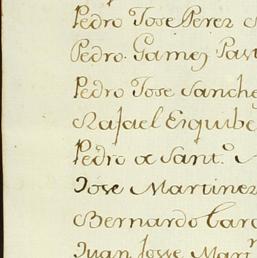 Pedro Jose Perez
Pedro Gamez
Pedro Jose Sanche
Rafael Esquibe
Pedro a Sant.º
Jose Martinez
Bernardo
Juan Josse Mart